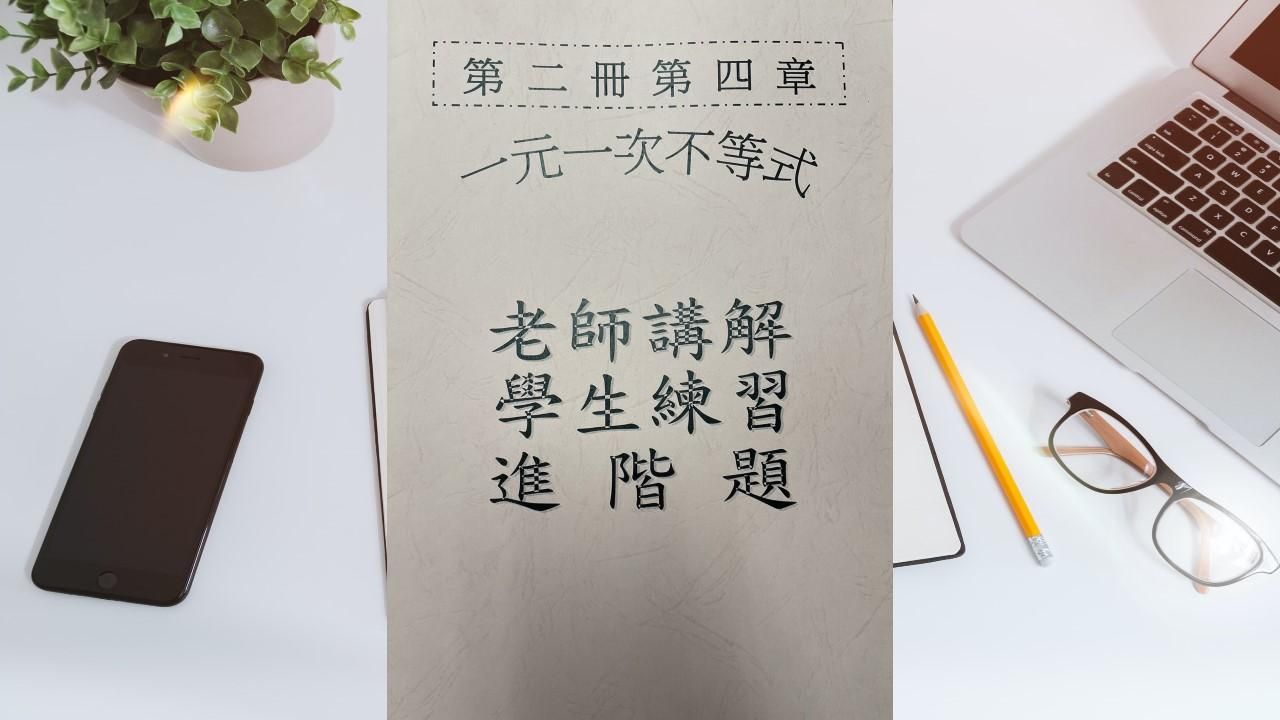 第二冊第四章
一元一次不等式
老師講解
學生練習
進階題